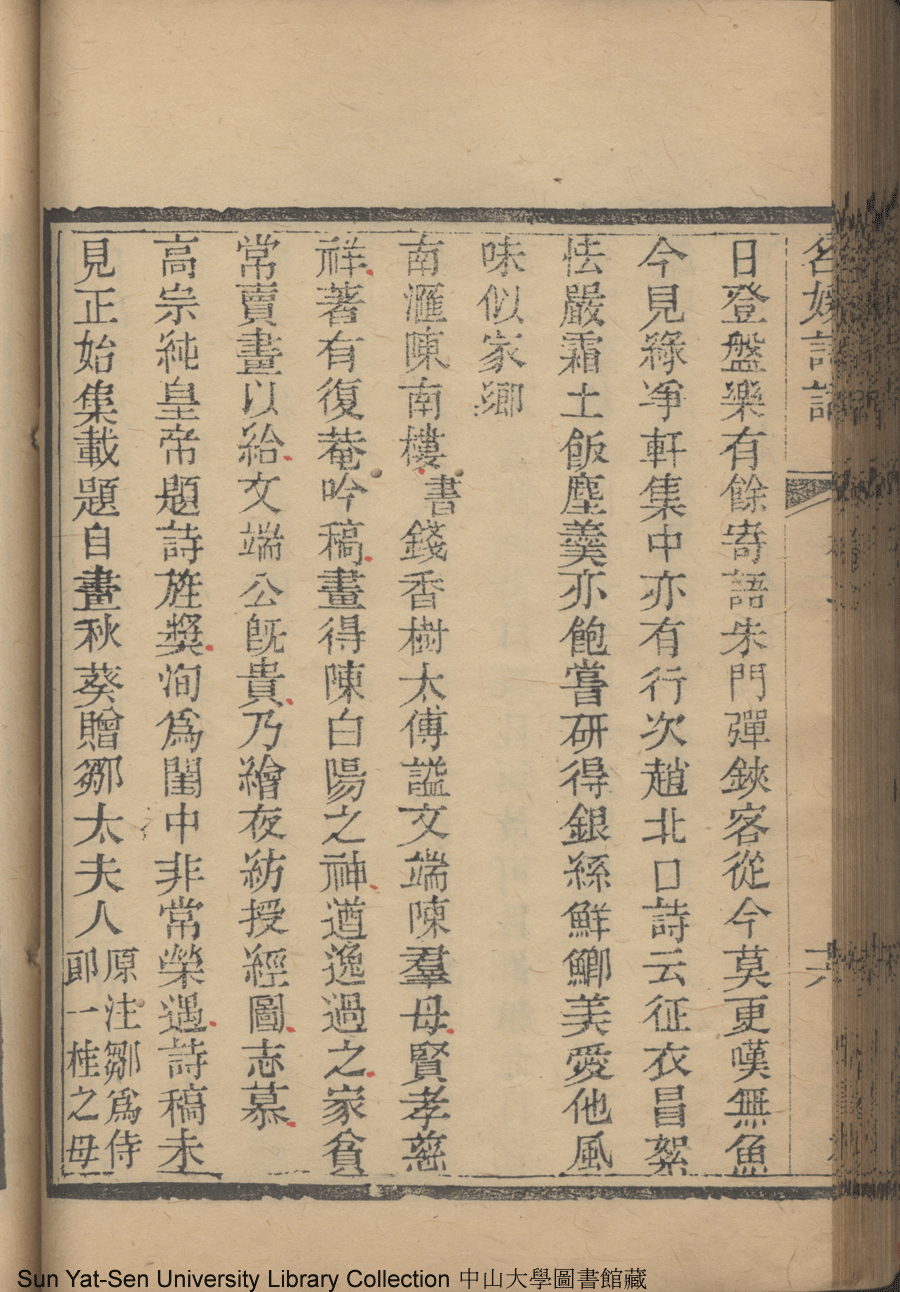 名媛詩話
十六
日登盤樂有餘寄語朱門彈鋏客從今莫更嘆無魚
今見綠凈軒集中亦有行次趙北口詩云征衣冒絮
怯嚴霜土飯塵羹亦飽嘗研得銀絲鮮鯽美愛他風
味似家鄉
南滙陳南樓書錢香樹太傅謚文端陳羣母賢孝慈
祥著有復菴吟稿畫得陳白陽之神遒逸過之家貧
常賣畫以給文端公旣貴乃繪夜紡授經圖志慕
高宗純皇帝題詩旌獎洵爲閨中非常榮遇詩稿未
見正始集載題自畫秋葵贈鄒太夫人原注鄒爲侍
郎一桂之母
Sun Yat-Sen University Library Collection 中山大學圖書館藏